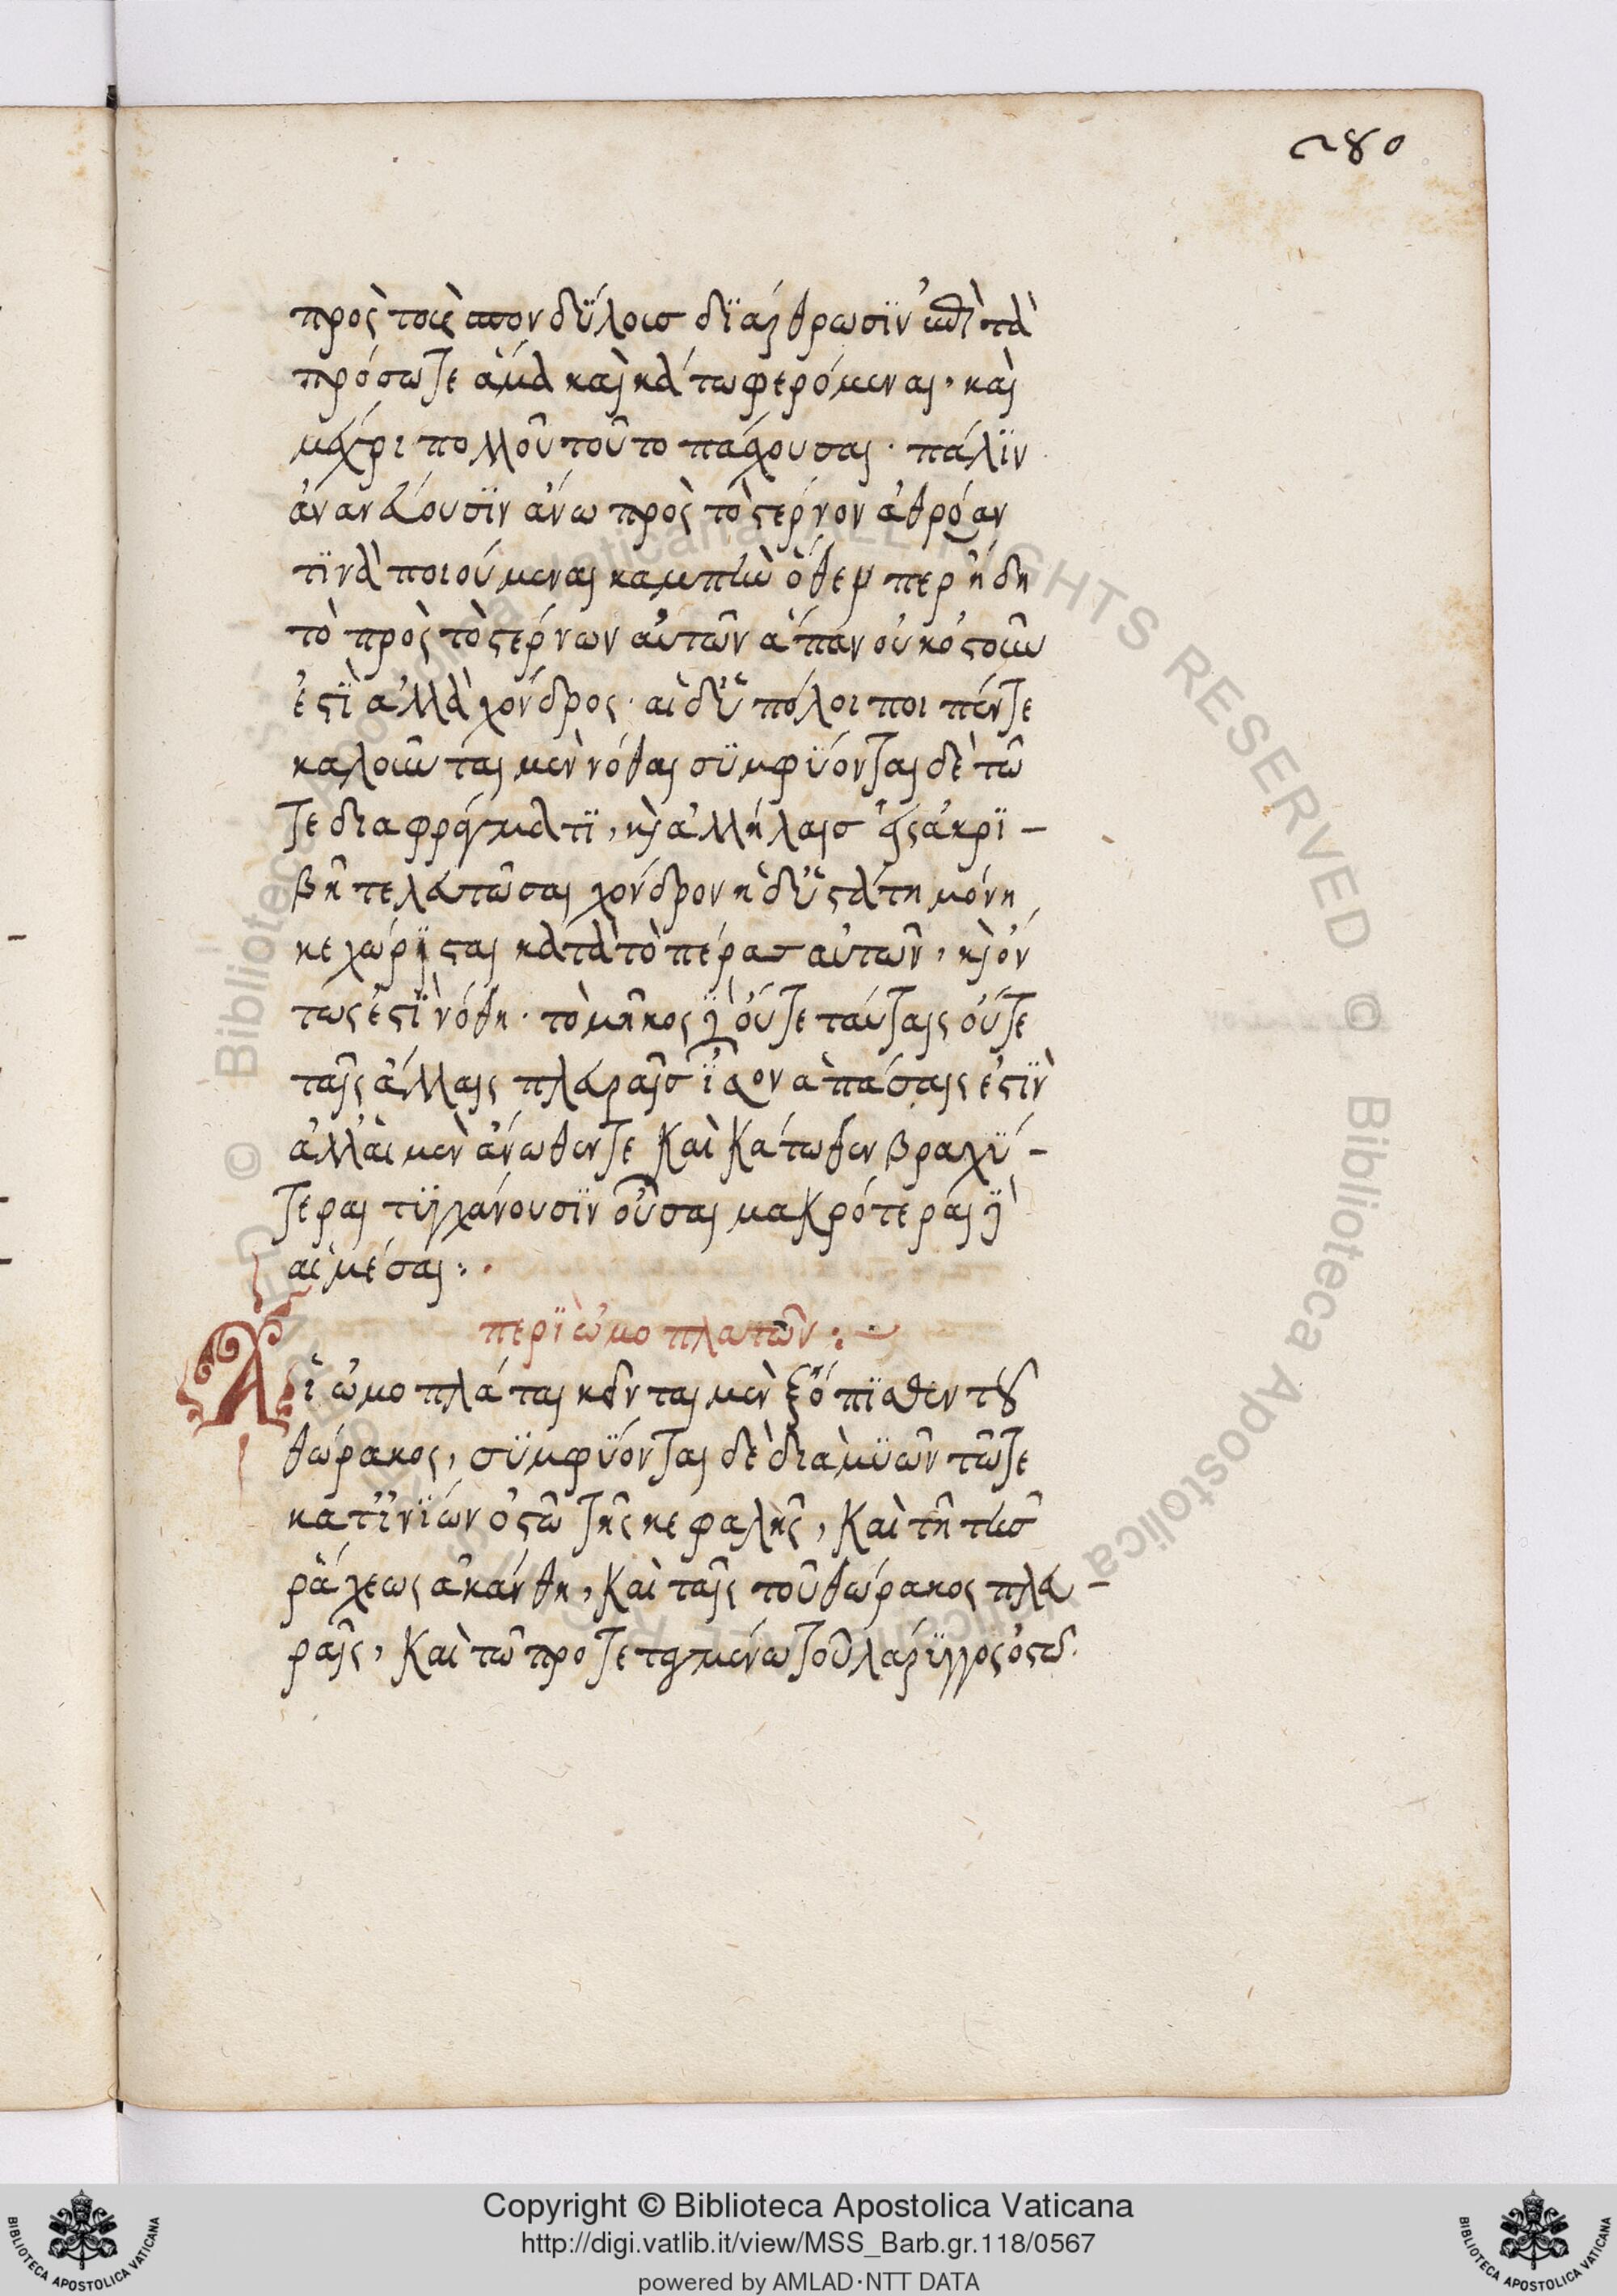 280
πρὸς τοῖς σπονδύλοισ δϊάρθρωσϊν ἐπὶ τὰ
πρόσω τε ἅμα καὶ κάτω φερόμεναι, καὶ
μέχρι πολλοῦ τοῦτο πάχουσαι · πάλϊν
ἀνανεύουσϊν ἄνω πρὸς τὸ στέρνον ἀθρόαν
τϊνὰ ποιούμεναι καμπὴν ὅθεν περ ἤδη
τὸ πρὸς τὸ στέρνων αὐτῶν ἅπαν οὐκ ὀστοῦν
ἐστϊ ἀλλὰ χόνδρος · αἱ δὲ ὑπόλοιποι πέντε
καλοῦνται μὲν νόθαι σϋμφϋόνται δὲ τῶ
τε διαφράγματϊ, καὶ ἀλλήλαισ εἰς ἀκρϊ-
βῆ τελευτῶσαι χόνδρον ἡ δὲ ὑστάτη μόνη
κεχώρϊσται κατὰ τὸ πέρασ αὐτῶν, καὶ ὄν
τως ἐστϊ νόθη · τὸ μῆκος δὲ οὔτε ταύταις οὔτε
ταῖς ἄλλαις πλευραῖσ ἴσον ἁπάσαις ἐστϊν
ἀλλ' αἱ μὲν ἄνωθεν τε καὶ κάτωθεν βραχϋ-
τεραι τϋγχάνουσϊν οὖσαι μακρότεραι δὲ
αἱ μέσαι : ·
περϊ ὠμοπλατῶν : ~
Αἱ ὠμοπλάται κεῖνται μὲν ἐξόπϊσθεν τοῦ
θώρακος, σϋμφϋόνται δὲ διὰ μϋῶν τῶ τε
κατ' ἰνϊων ὀστῶ τῆς κεφαλῆς, καὶ τῆ τῆσ
ράχεως ἀκάνθη, καὶ ταῖς τοῦ θώρακος πλευ-
ραῖς, καὶ τῶ προτεταγμένω τοῦ λάρϋγγος ὀστῶ.
BIBLIOTECA APOSTOLICA VATICANA
Copyright © Biblioteca Apostolica Vaticana
http://digi.vatlib.it/view/MSS_Barb.gr.118/0567
powered by AMLAD·NTT DATA
BIBLIOTECA APOSTOLICA VATICANA